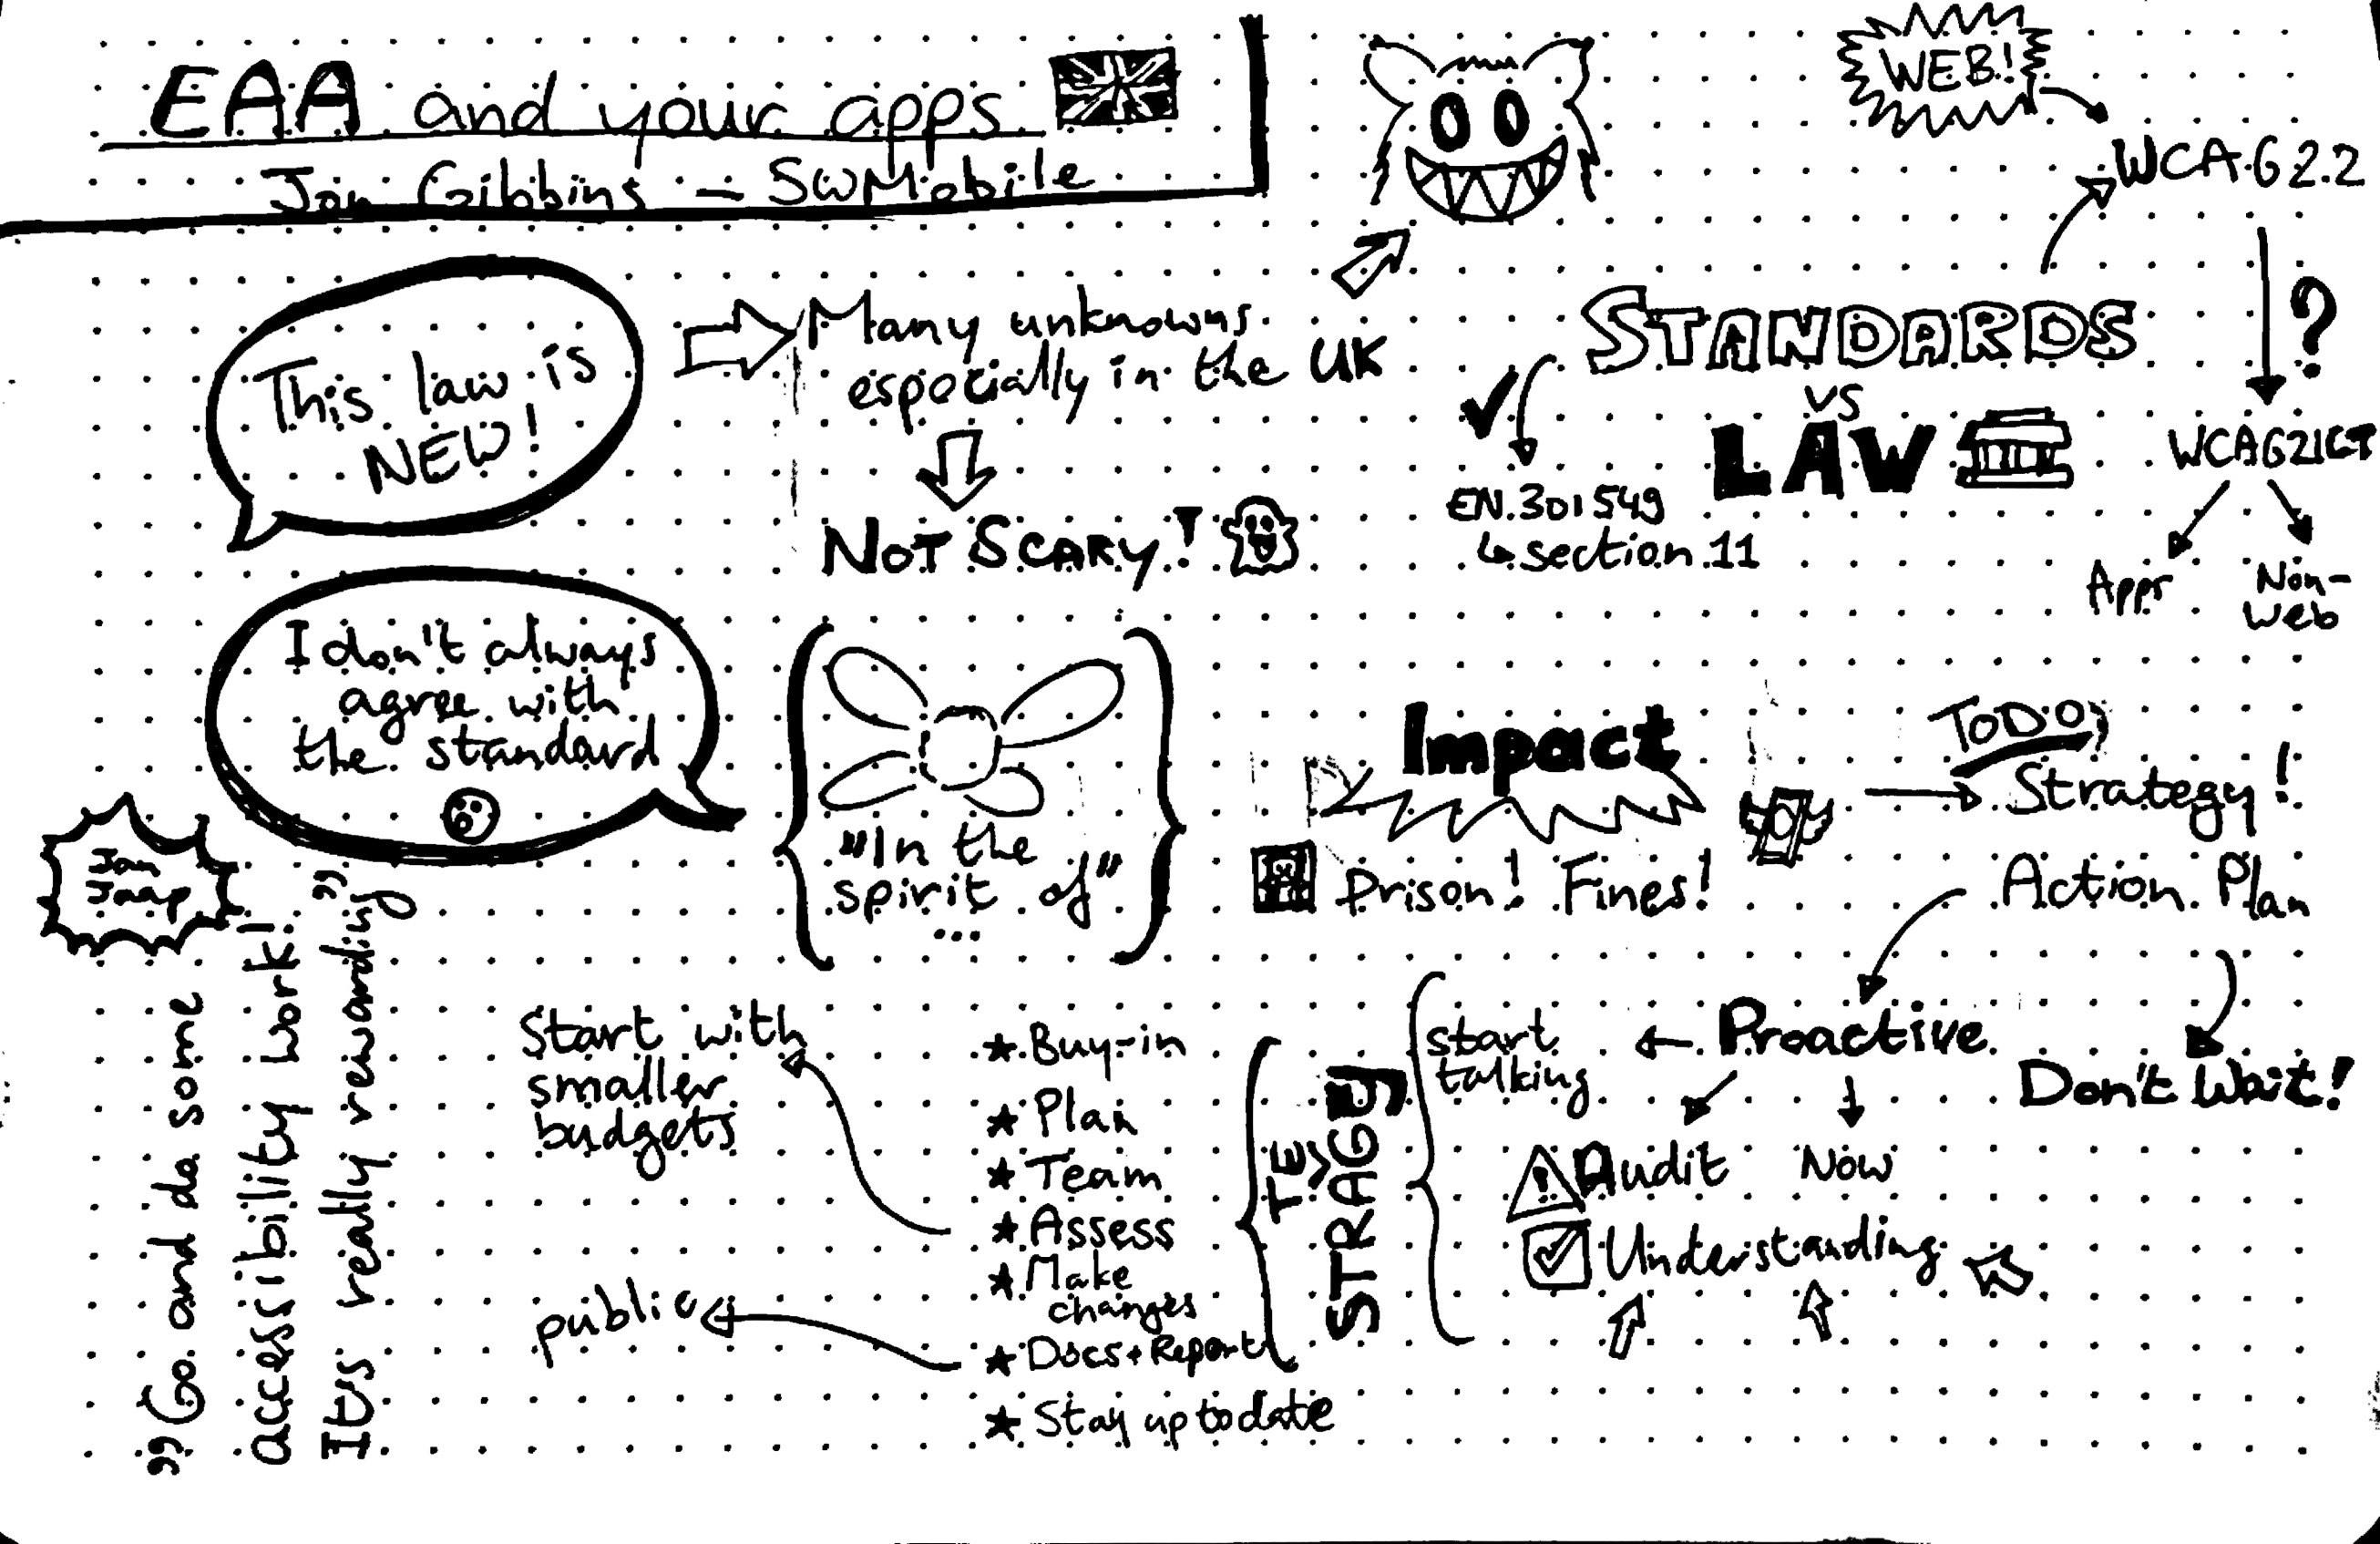 EAA and your apps
Jon Gibbins – SWMobile
WEB!
WCAG 2.2
This law is
NEW!
Many unknowns
especially in the UK
NOT SCARY!
STANDARDS
vs
LAW
?
EN.301549
↳ section 11
WCAG2ICT
Apps
Non-
Web
I don't always
agree with
the standard
"In the
spirit of"
...
Impact
Prison! Fines!
TODO
Strategy!
Action Plan
Jan
Jaap
"Go and do some
accessibility work!
It's really rewarding"
Start with
smaller
budgets
public
★ Buy-in
★ Plan
★ Team
★ Assess
★ Make
changes
★ Docs + Report
★ Stay up to date
STRATEGY
start
talking
Proactive
Don't Wait!
Audit
Now
Understanding